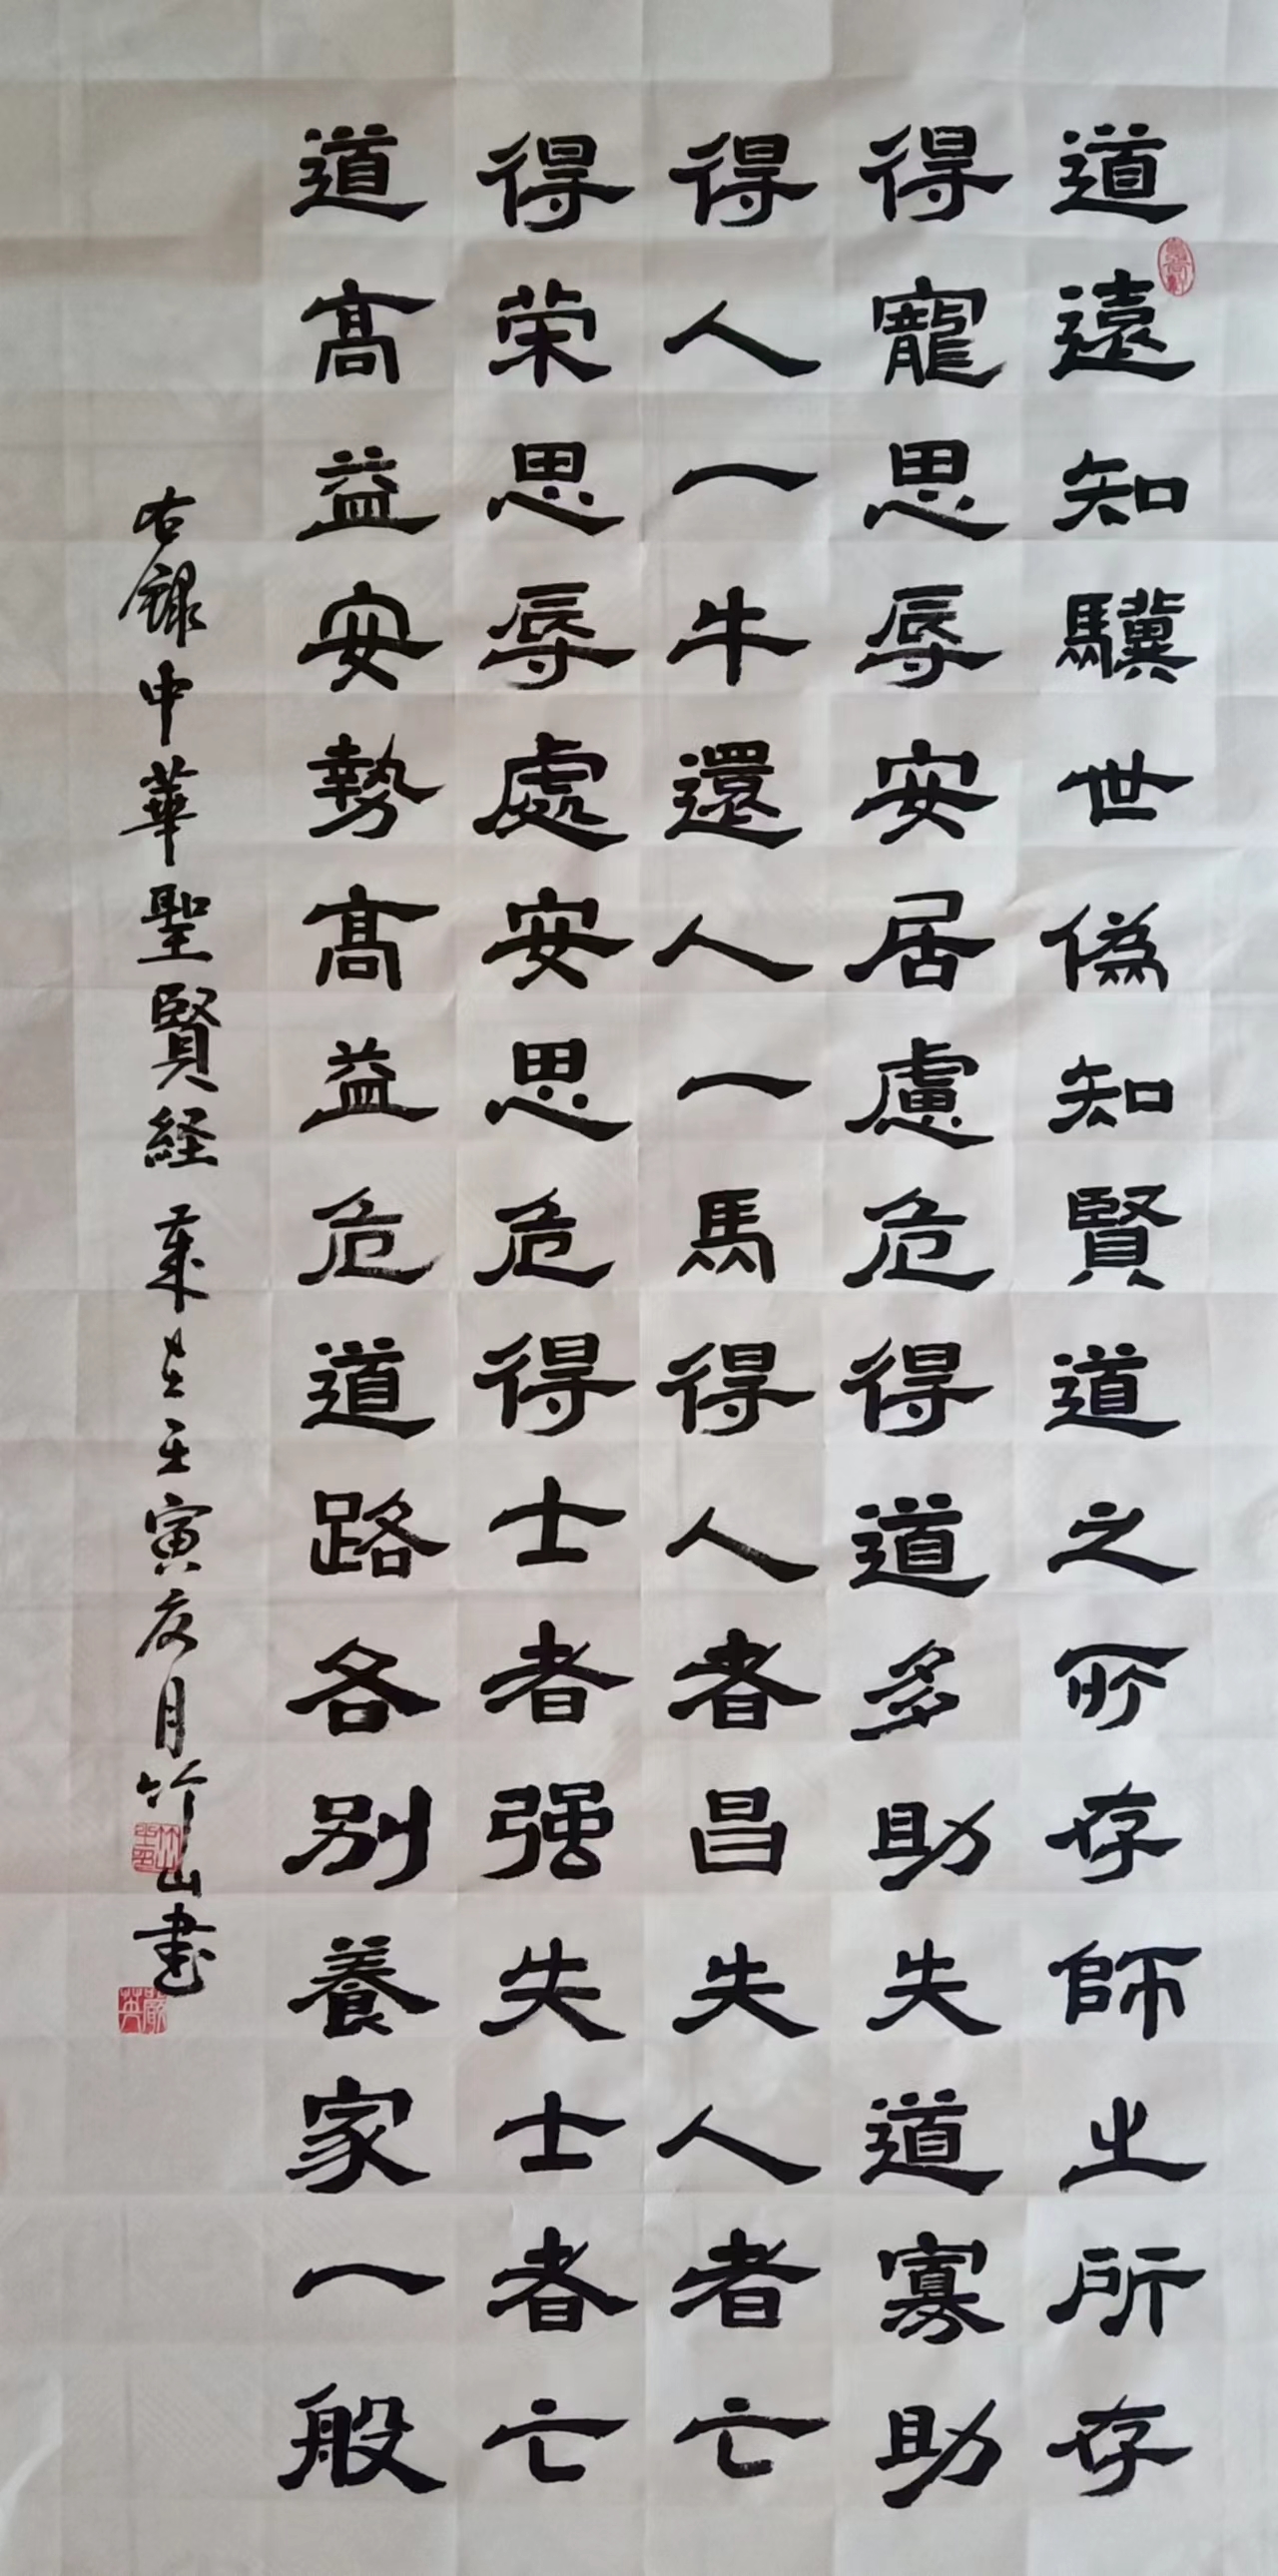 道遠知驥世偽知賢道之所存師之所存
得寵思辱安居慮危得道多助失道寡助
得人一牛還人一馬得人者昌失人者亡
得荣思辱處安思危得士者强失士者亡
道高益安勢高益危道路各別養家一般
右録中華聖賢経 壬寅友月竹山書